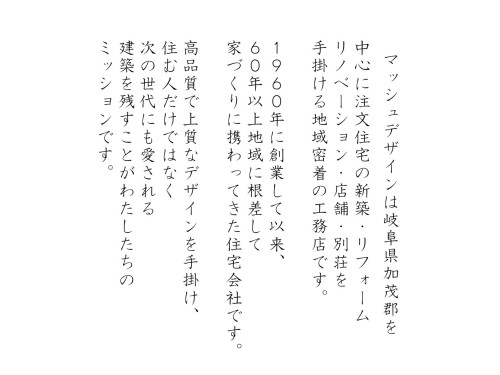 マッシュデザインは岐阜県加茂郡を
中心に注文住宅の新築・リフォーム
リノベーション・店舗・別荘を
手掛ける地域密着の工務店です。
1960年に創業して以来、
60年以上地域に根差して
家づくりに携わってきた住宅会社です。
高品質で上質なデザインを手掛け、
住む人だけではなく
次の世代にも愛される
建築を残すことがわたしたちの
ミッションです。